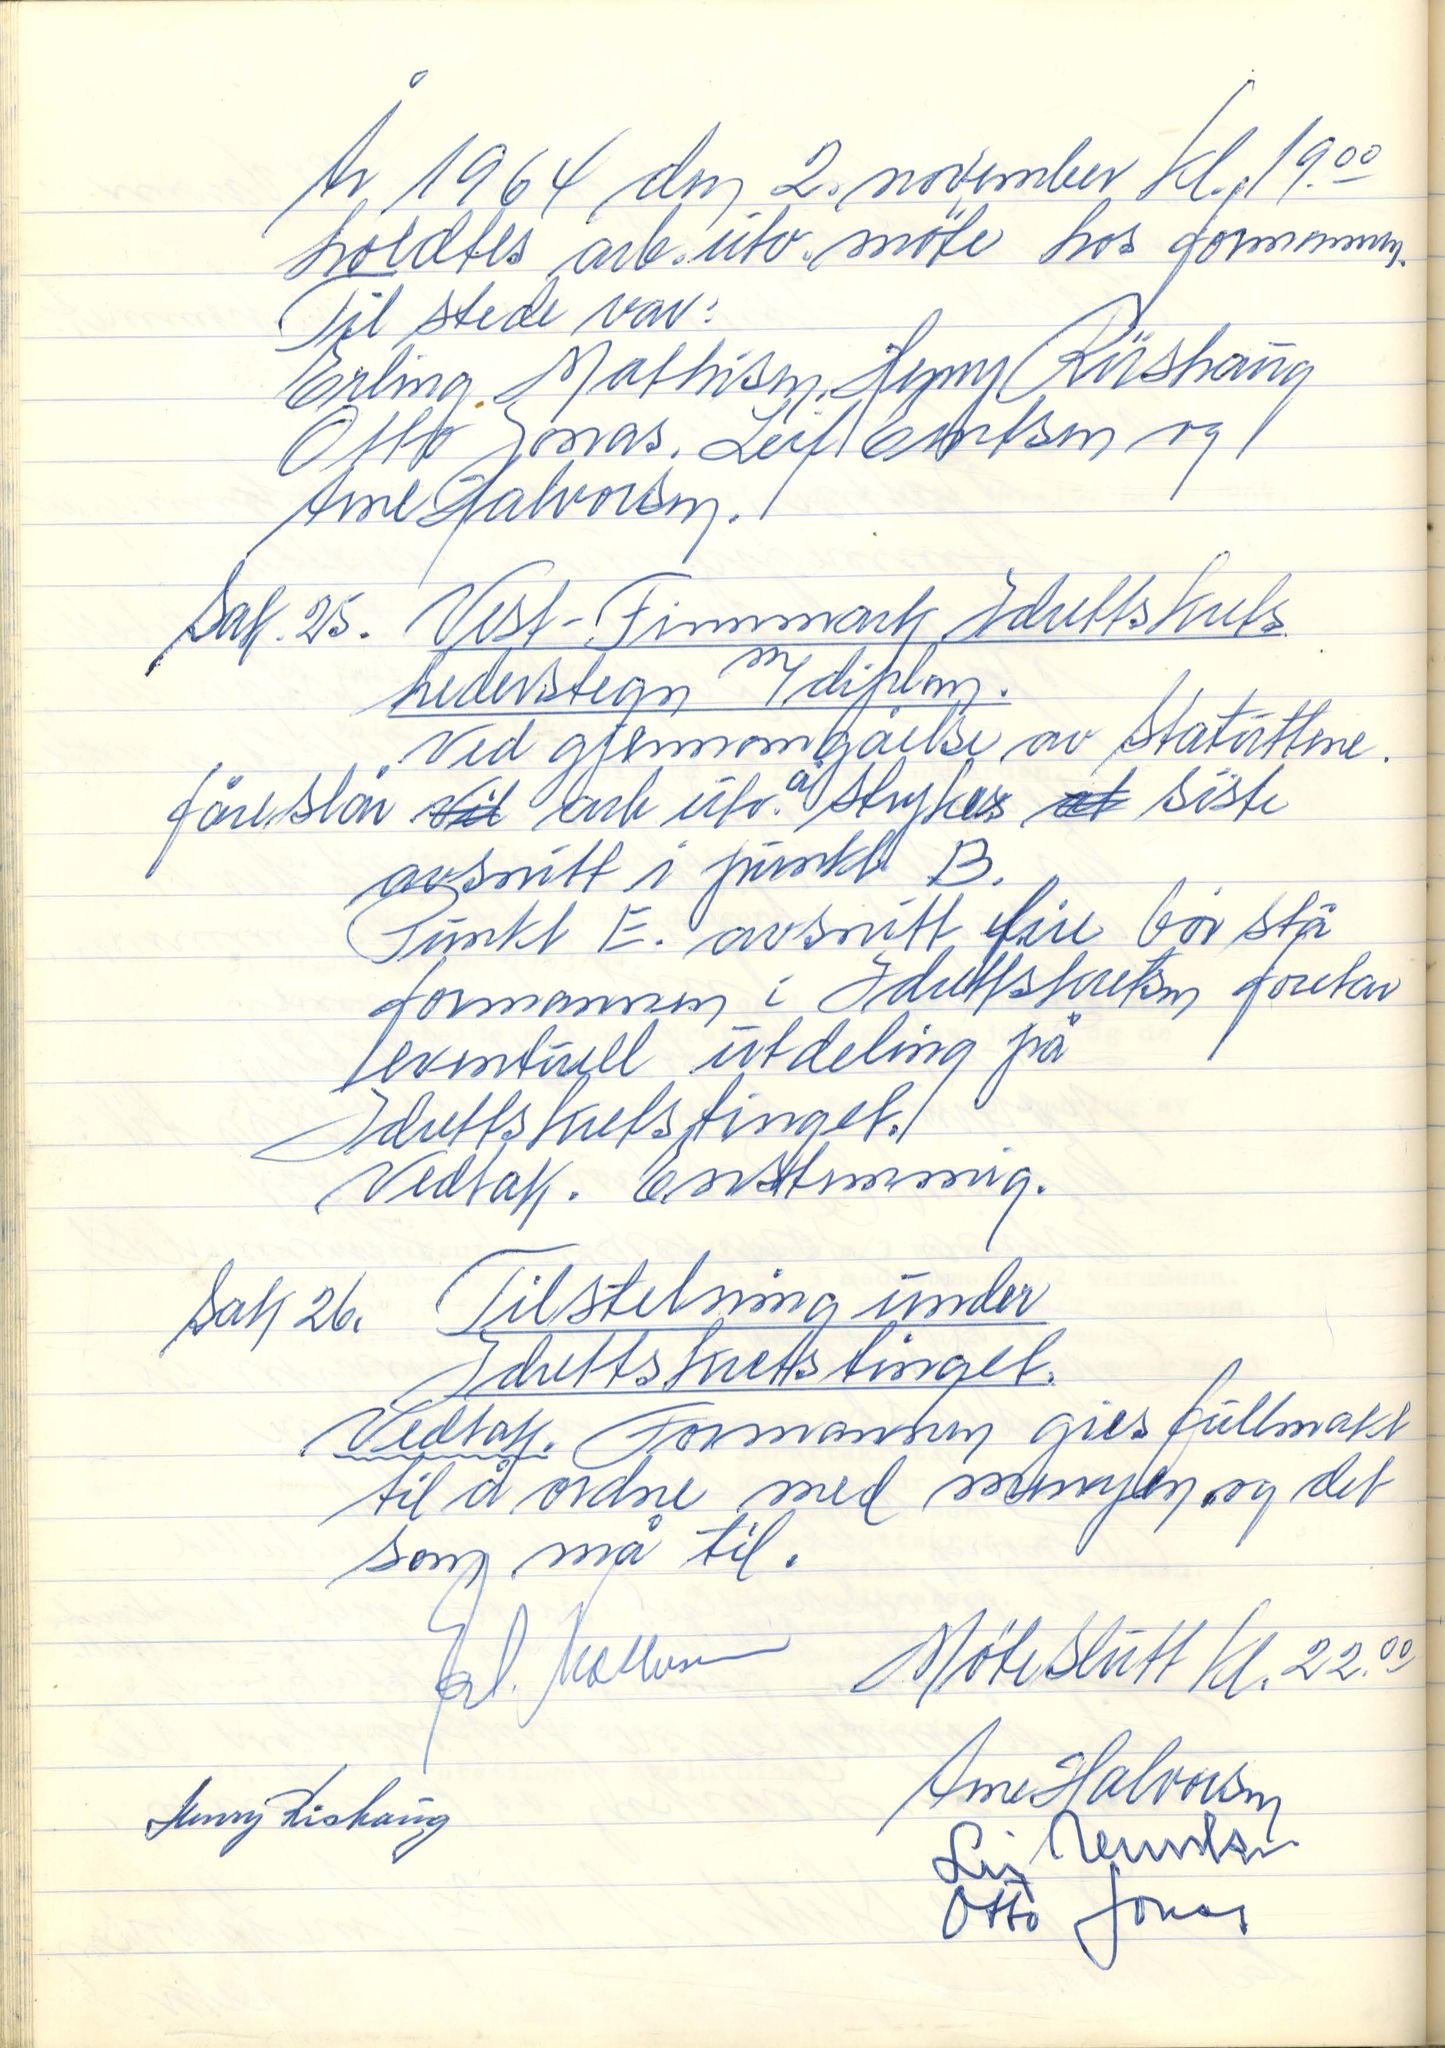 År 1964 den 2. november kl. 19.00
holdtes arb. utv. möte hos formannen.
Til stede var:
Erling Mathisen, Henry Rishaug
Otto Jonas. Leif Emilsen og
Arne Halvorsen.
Sak. 25. Vest-Finnmark Idrettskrets
hederstegn m/diplom.
Ved gjennomgåelse av statuttene.
föreslår arb utv. å stryke siste
avsnitt i punkt B.
Punkt E. avsnitt fire bör stå
formannen i Idrettskretsen foretar
eventuell utdeling på
Idrettskretstinget.
Vedtak. Enstemmig.
Sak 26. Tilstelning under
Idrettskretstinget.
Vedtak. Formannen gies fullmakt
til å ordne med menyen og det
som må til.
Erl. Mathisen
Möteslutt kl. 22.00
Arne Halvorsen
Henry Rishaug
Leif
Otto Jonas